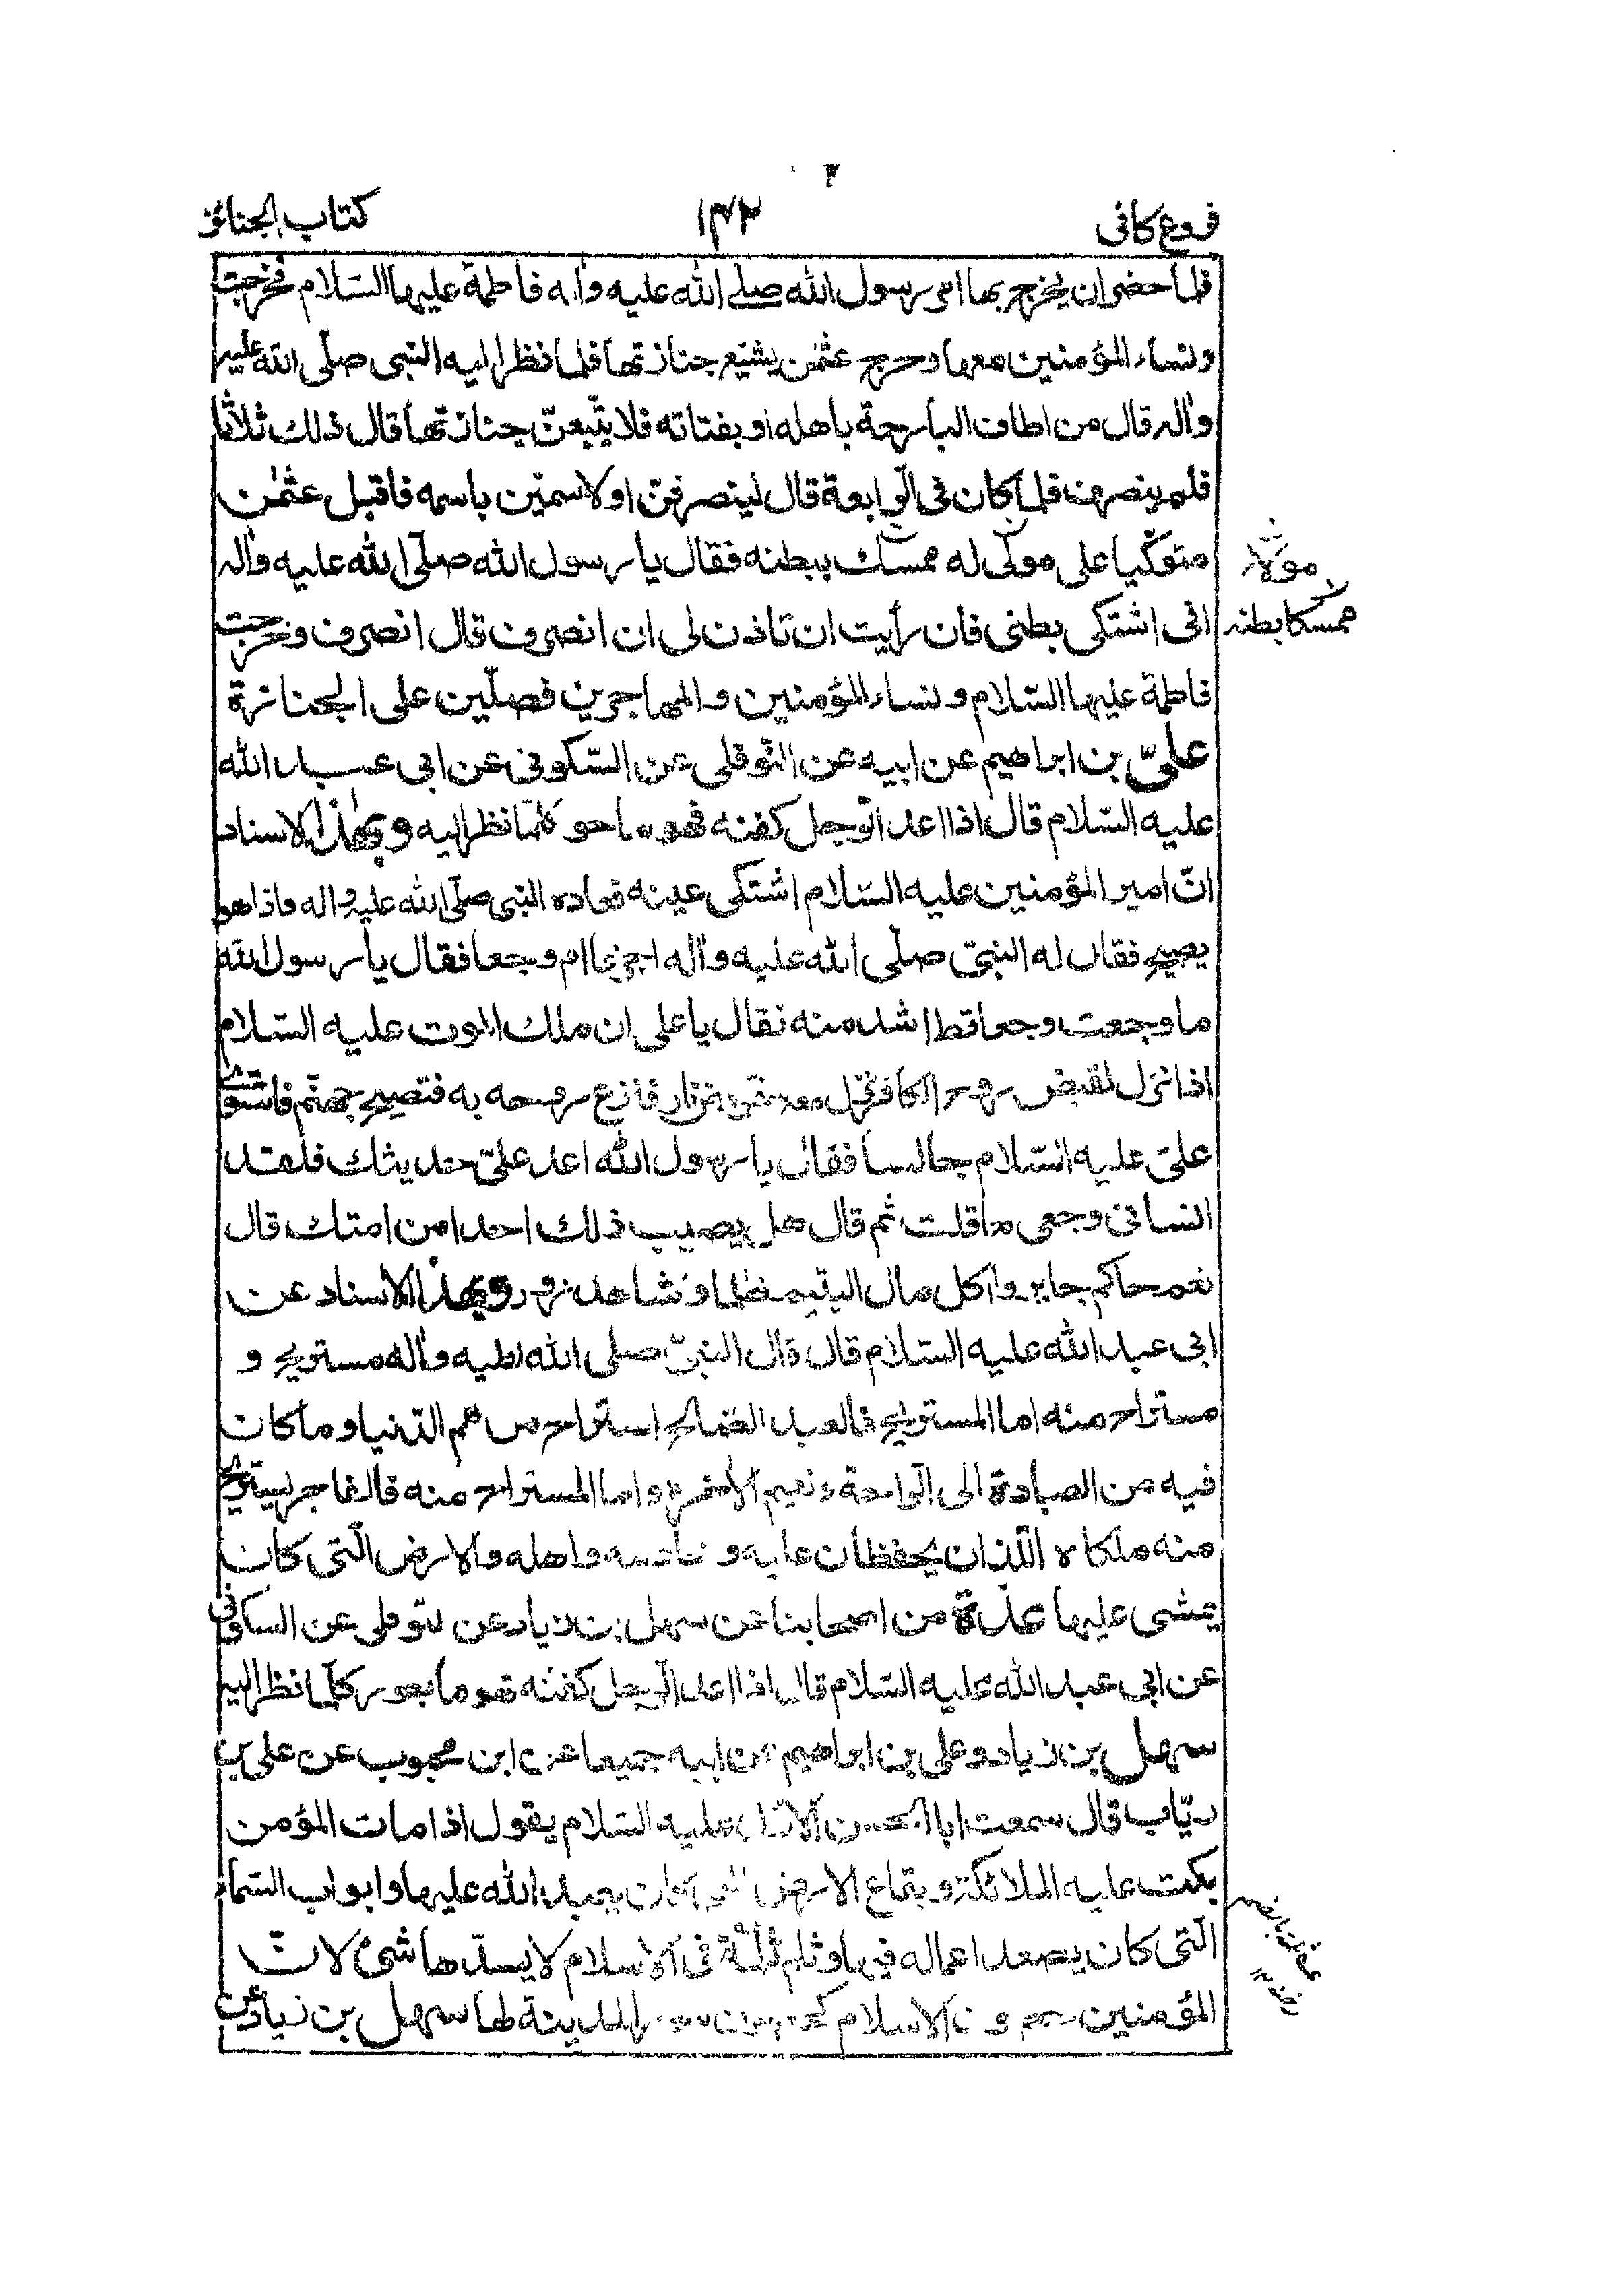 فروع كافى
١٤٢
كتاب الجنائز
فلما حضر ان يخرج بها امر رسول الله صلى الله عليه وآله فاطمة عليها السّلام فخرجت
ونساء المؤمنين معها وخرج عثمٰن يشيّع جنازتها فلما نظر اليه النبى صلّى الله عليه
وآله قال من اطاف البارحة باهله او بفتاته فلا يتّبعنّ جنازتها قال ذلك ثلاثا
فلم ينصرف فلما كان فى الرّابعة قال لينصرفنّ او لاسمّين باسمه فاقبل عثمٰن
متوكّيا على مولى له ممسك ببطنه فقال يا رسول الله صلّى الله عليه وآله
انى اشتكى بطنى فان رأيت ان تاذن لى ان انصرف قال انصرف وخرجت
فاطمة عليها السّلام ونساء المؤمنين والمهاجرين فصلّين على الجنازة
علىّ بن ابراهيم عن ابيه عن النّوفلى عن السّكونى عن ابى عبد الله
عليه السّلام قال اذا اعد الرّجل كفنه فهو ماجور كلّما نظر اليه وبهذا الاسناد
انّ امير المؤمنين عليه السّلام اشتكى عينه فعاده النبى صلّى الله عليه واله فاذا هو
يصيح فقال له النبىّ صلّى الله عليه وآله اجزعا ام وجعا فقال يا رسول الله
ما وجعت وجعا قط اشد منه فقال يا على ان ملك الموت عليه السّلام
اذا نزل لقبض روح الكافر نزل معه من نار فنزع روحه به فتصيح جهنّم فاستوى
علىّ عليه السّلام جالسا فقال يا رسول الله اعد علىّ حديثك فلقد
انسانى وجعى ما قلت ثم قال هل يصيب ذلك احدا من امتك قال
نعم حاكم جاير واكل مال اليتيم ظلما وشاهد زور وبهذا الاسناد عن
ابى عبد الله عليه السّلام قال قال النبىّ صلى الله عليه وآله مستريح و
مستراح منه اما المستريح فالعبد الصالح استراح من غم الدّنيا وما كان
فيه من العبادة الى الرّاحة ونعيم الآخرة واما المستراح منه فالفاجر يستريح
منه ملكاه اللّذان يحفظان عليه و خادمه واهله والارض الّتى كان
يمشى عليها عدّة من اصحابنا عن سهل بن زياد عن النوفلى عن السكونى
عن ابى عبد الله عليه السّلام قال اذا اعد الرّجل كفنه فهو ماجور كلّما نظر اليه
سهل بن زياد وعلى بن ابراهيم عن ابيه جميعا عن ابن محبوب عن على بن
ريّاب قال سمعت ابا الحسن الاوّل عليه السّلام يقول اذا مات المؤمن
بكت عليه الملائكة وبقاع الارض التى كان يعبد الله عليها وابواب السّماء
الّتى كان يصعد اعماله فيها وثلم ثلمة فى الاسلام لا يسدّها شىء لانّ
المؤمنين حصون الاسلام كحصون سور المدينة لها سهل بن زياد عن
مولاه
ممسكا بطنه